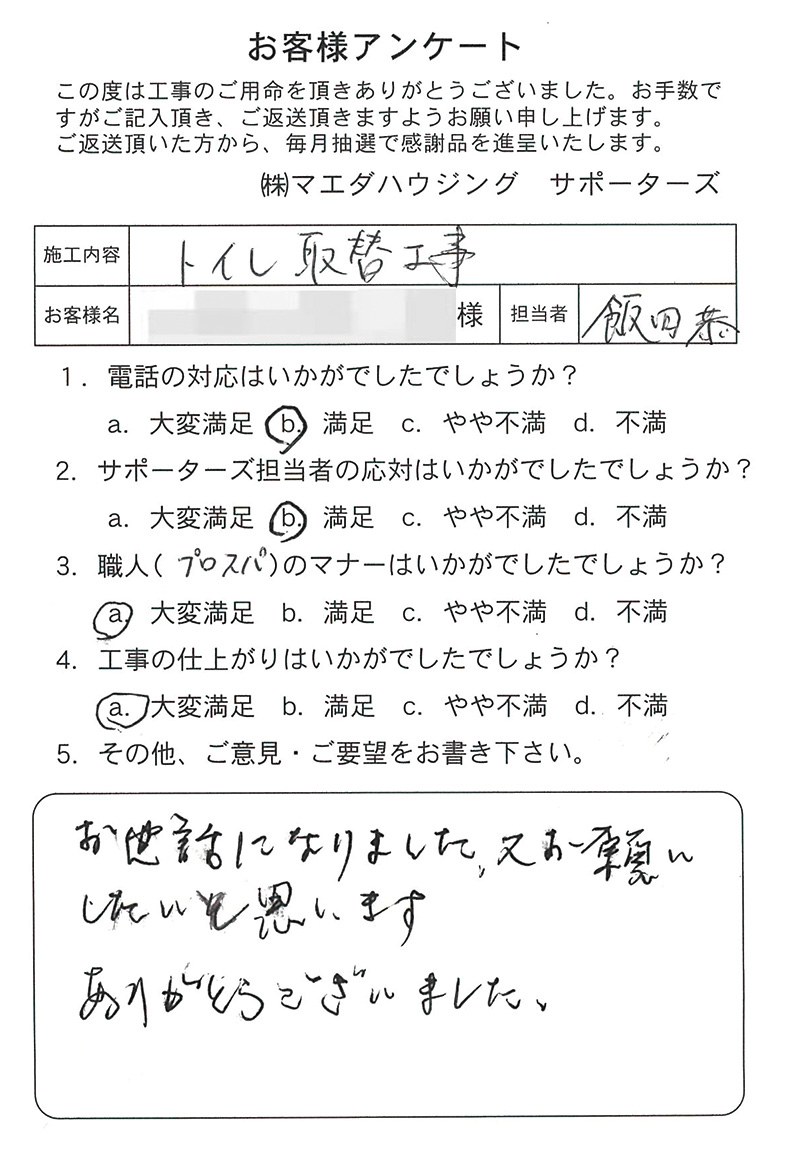 お客様アンケート
この度は工事のご用命を頂きありがとうございました。お手数で
すがご記入頂き、ご返送頂きますようお願い申し上げます。
ご返送頂いた方から、毎月抽選で感謝品を進呈いたします。
㈱マエダハウジング　サポーターズ
施工内容 トイレ取替工事
お客様名 様 担当者 飯田恭
1. 電話の対応はいかがでしたでしょうか？
a. 大変満足 b. 満足 c. やや不満 d. 不満
2. サポーターズ担当者の応対はいかがでしたでしょうか？
a. 大変満足 b. 満足 c. やや不満 d. 不満
3. 職人(プロスパ)のマナーはいかがでしたでしょうか？
a. 大変満足 b. 満足 c. やや不満 d. 不満
4. 工事の仕上がりはいかがでしたでしょうか？
a. 大変満足 b. 満足 c. やや不満 d. 不満
5. その他、ご意見・ご要望をお書き下さい。
お世話になりました、又お願い
したいと思います
ありがとうございました。